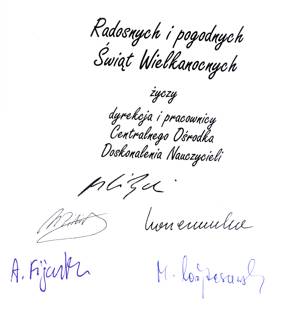 Radosnych i pogodnych
Świąt Wielkanocnych
życzy
dyrekcja i pracownicy
Centralnego Ośrodka
Doskonalenia Nauczycieli
A.
M.